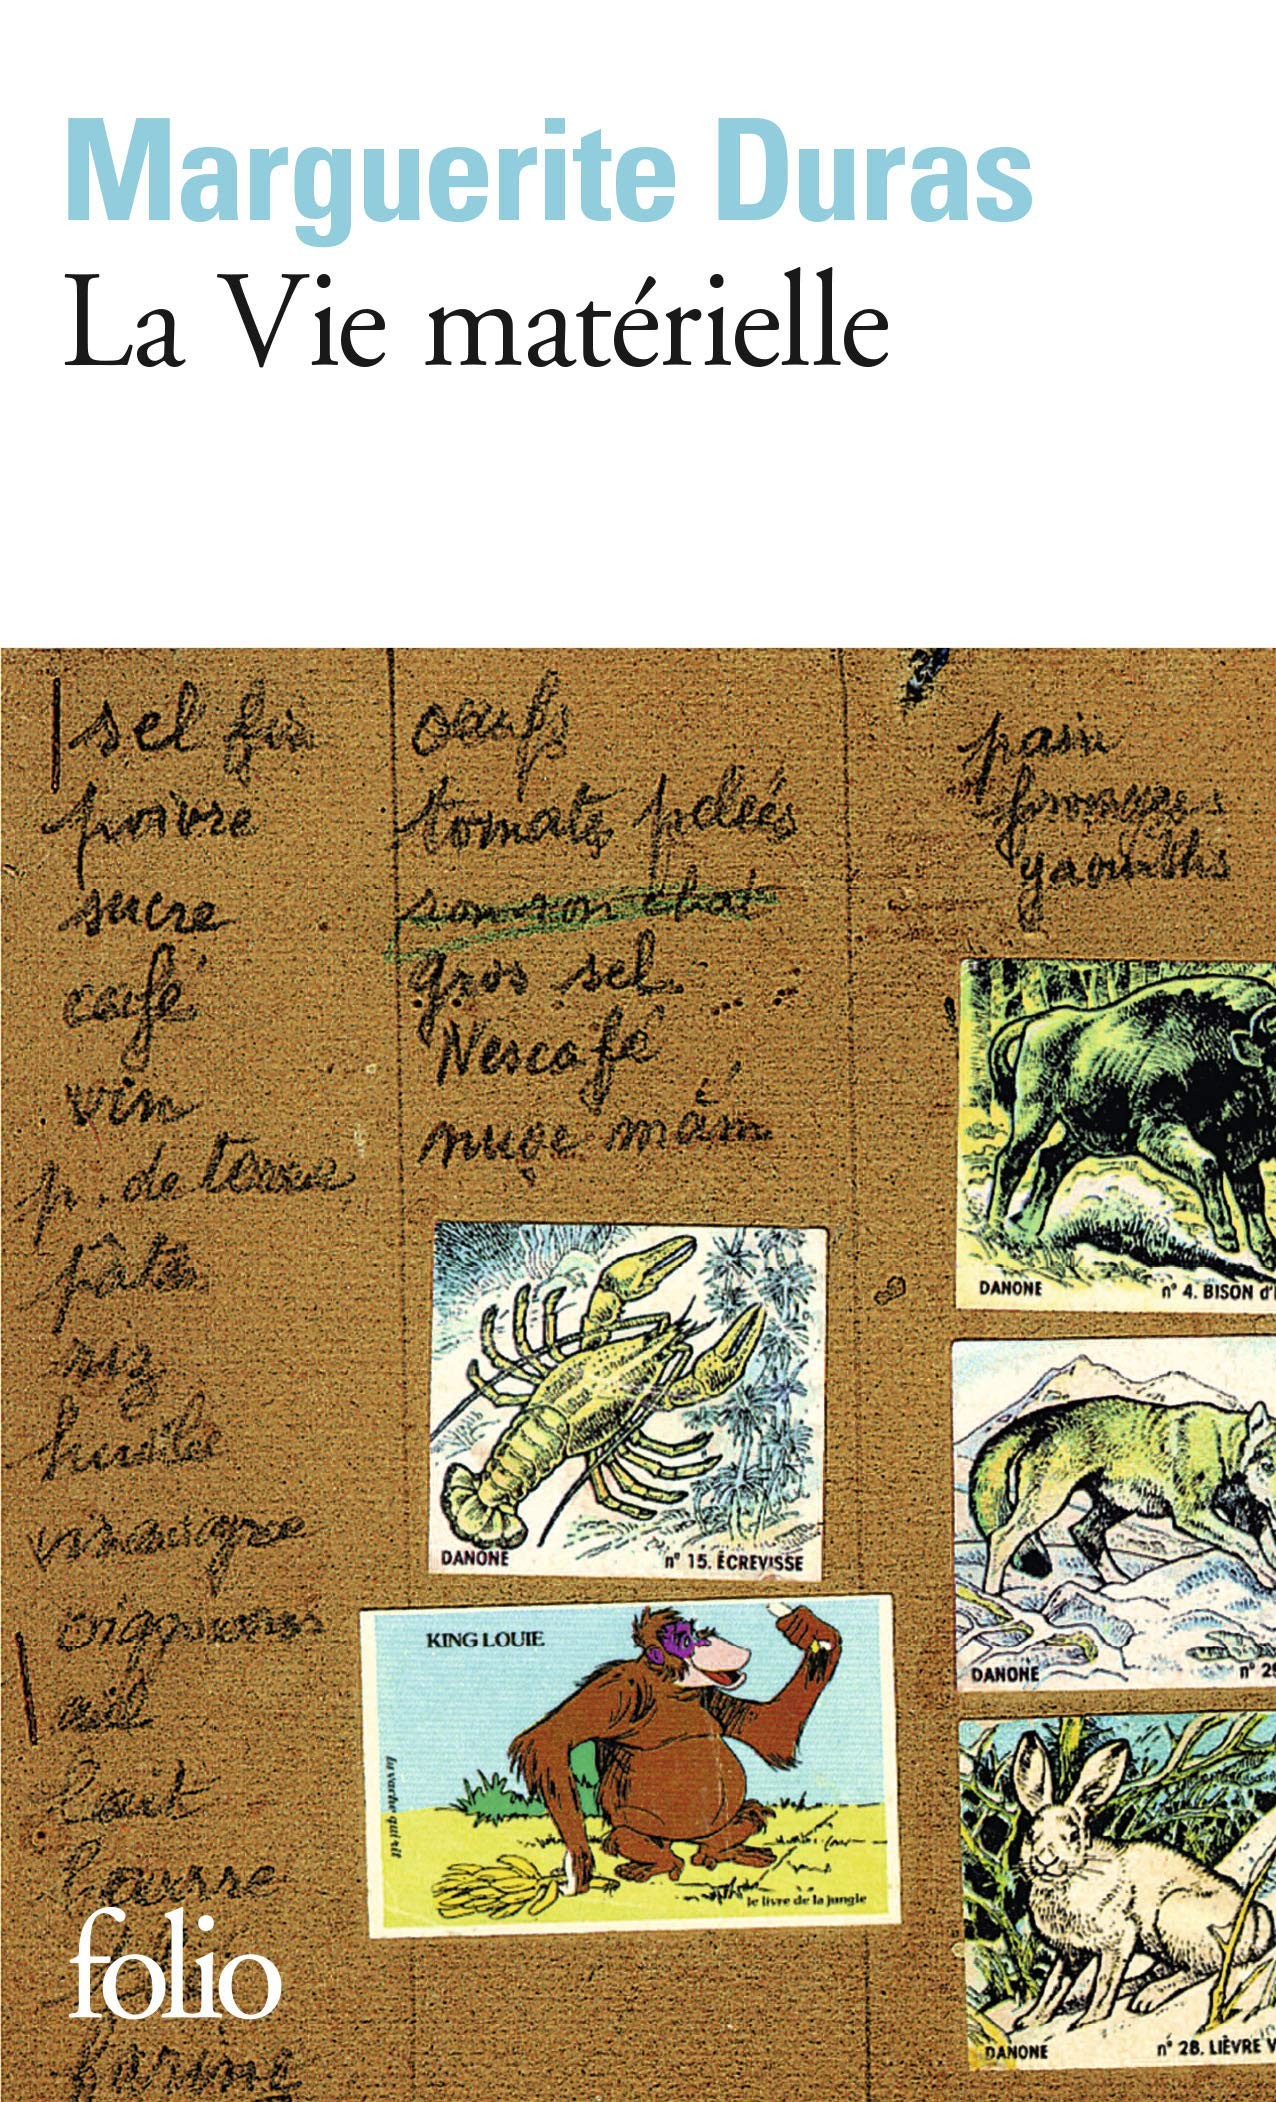 Marguerite Duras
La Vie matérielle
sel fin
poivre
sucre
café
vin
p. de terre
pâtes
riz
huile
vinaigre
oignons
ail
lait
beurre
farine
œufs
tomate pelées
gros sel
Nescafé
nuoc mâm
pain
fromages
yaourths
DANONE n° 4. BISON d'
DANONE n° 15. ÉCREVISSE
KING LOUIE
la vache qui rit
le livre de la jungle
DANONE
DANONE n° 28. LIÈVRE V
folio